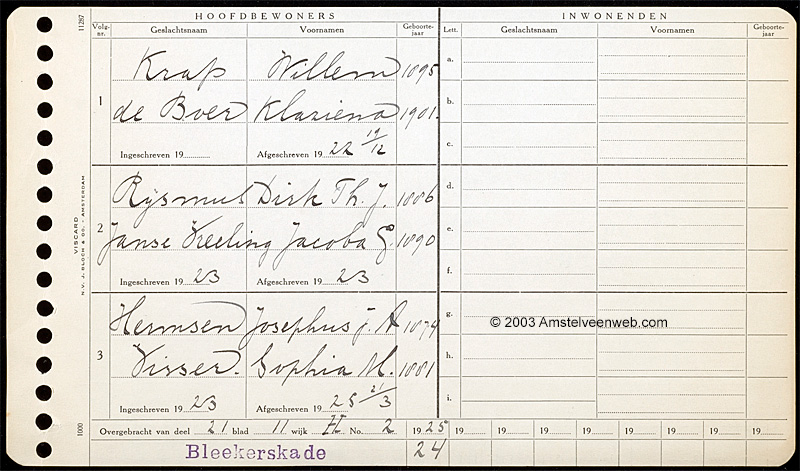 HOOFDBEWONERS
INWONENDEN
Volg-nr. Geslachtsnaam Voornamen Geboorte-jaar
Lett. Geslachtsnaam Voornamen Geboorte-jaar
11287
1
Krap Willem 1895
de Boer Klaziena 1901.
Ingeschreven 19 Afgeschreven 19 22 19/12
2
Rijsmus Dirk Th. J. 1886
Janse Kreeling Jacoba G. 1890
Ingeschreven 19 23 Afgeschreven 19 23
3
Hermsen Josephus J. A 1874
Visser Sophia M. 1881
Ingeschreven 19 23 Afgeschreven 19 25 21/3
a.
b.
c.
d.
e.
f.
g.
h.
i.
© 2003 Amstelveenweb.com
VISCARD
N.V. J. BLOCH & CO. - AMSTERDAM
1000
Overgebracht van deel 21 blad 11 wijk H No. 2 1925 19 19 19 19 19 19 19 19
Bleekerskade 24